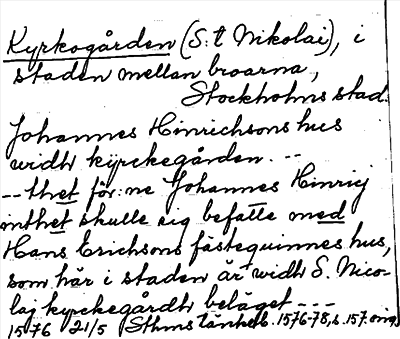 Kyrkogården (S:t Nikolai), i
staden mellan broarna,
Stockholms stad.
Johannes Hinrichsons hus
widh kyrckegården. --
-- thet för:ne Johannes Hinrichz
inthet skulle sig befatte med
Hans Erichsons fästequinnes hus,
som här i staden är widh S. Nico-
laj kyrckegårdh beläget ---
1576 21/5 Sthms tänkeb. 1576-78, s. 157. orig.